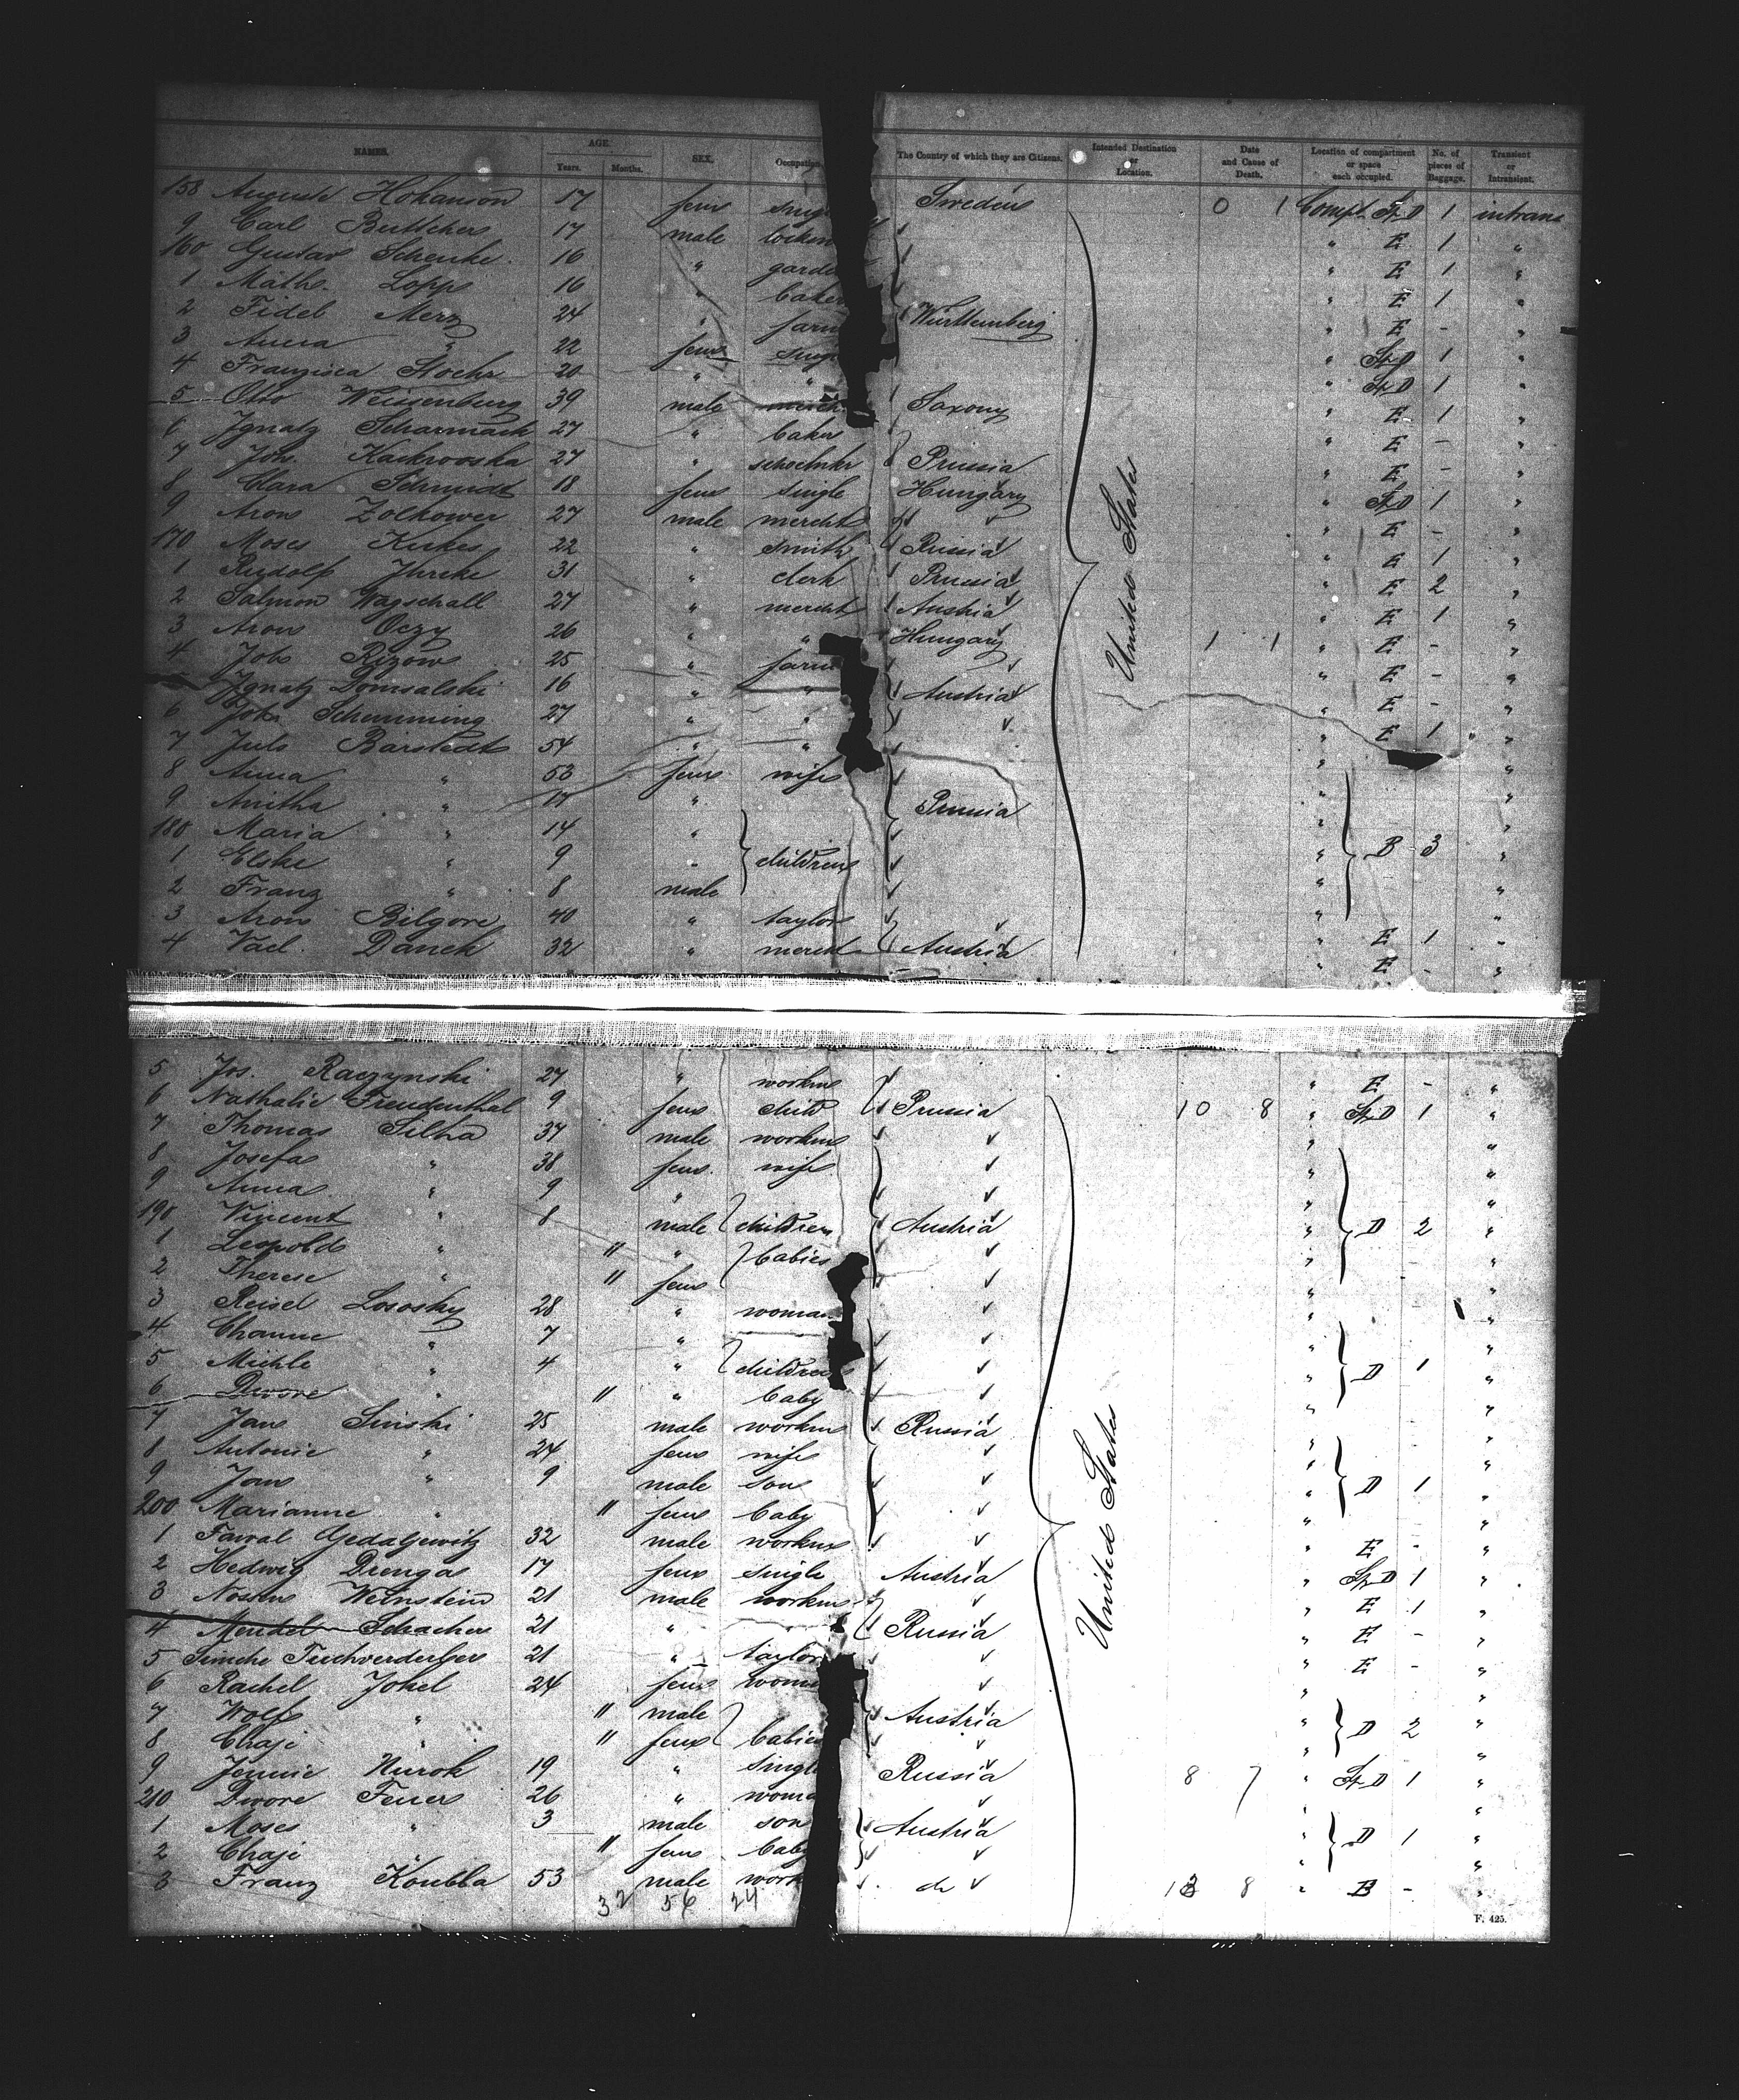 NAMES. AGE. Years. Months. SEX. Occupation The Country of which they are Citizens. Intended Destination or Location. Date and Cause of Death. Location of compartment or space each occupied. No. of pieces of Baggage. Transient or Intransient.
158 Auguste Hokanson 17 fem sing Sweden 0 1 Compt. St D 1 intrans
9 Carl Buttchers 17 male " E 1 "
160 Gustav Schenke 16 " garde " E 1 "
1 Maths. Lopp 16 " baker " E 1 "
2 Fidel Merz 24 " farm Württemberg " E - "
3 Anna " 22 fem sing " St D 1 "
4 Franzisca Stoehr 20 " " " St D 1 "
5 Otto Weissenburg 39 male merch Saxony " E 1 "
6 Ignatz Scharmack 27 " baker " E - "
7 Joh. Kackrooska 27 " schoemkr Prussia " E - "
8 Clara Schmidt 18 fem single Hungary " St D 1 "
9 Aron Zolkower 27 male mercht " E - "
170 Moses Kirkes 22 " smith Russia " E 1 "
1 Rudolf Jhrcke 31 " clerk Prussia " E 2 "
2 Salmon Wagschall 27 " mercht Austria " E 1 "
3 Aron Oczy 26 " " Hungary 1 1 " E - "
4 Joh Rizow 25 " farm " E - "
Ignatz Domsalski 16 " " Austria " E - "
6 Joh Schemming 27 " " " E 1 "
7 Juls Barstedt 54 " " " "
8 Anna " 53 fem wife " "
9 Anitha " 17 " Prussia " "
180 Maria " 14 " " B 3 "
1 Elske " 9 " children " "
2 Franz " 8 male " "
3 Aron Bilgore 40 " taylor " E 1 "
4 Vacl. Danek 32 " mercht Austria " E - "
United States
5 Jos. Raczynski 27 " workm " E - "
6 Nathalie Freudenthal 9 fem child Prussia 10 8 " St D 1 "
7 Thomas Silha 37 male workm " "
8 Josefa " 38 fem. wife " "
9 Anna " 9 " " "
190 Vincent " 8 male children Austria " D 2 "
1 Leopold " 11 " babies " "
2 Therese " 11 fem " "
3 Reisel Lososky 28 " woman " "
4 Channe " 7 " " "
5 Michle " 4 " children " D 1 "
6 Dwore " 11 " baby " "
7 Jan Sinski 25 male workm Russia " "
8 Antonie " 24 fem wife " "
9 Jan " 9 male son " D 1 "
200 Marianne " 11 fem baby " "
1 Fawal Gedaljewitz 32 male workm " E - "
2 Hedwig Drenga 17 fem single Austria " St D 1 "
3 Nossen Weinstein 21 male workm " E 1 "
4 Mendel Schacher 21 " " Russia " E - "
5 Simche Tuchverderber 21 " taylor " E - "
6 Rachel Jokel 24 fem woma " "
7 Wolf " 11 male Austria " D 2 "
8 Chaje " 11 fem babies " "
9 Jennie Nurok 19 " single Russia 8 7 " St D 1 "
210 Dwore Feuer 26 " woma "
1 Moses " 3 male son Austria " D 1 "
2 Chaje " 11 fem baby " "
3 Franz Koubla 53 male work do 8 " B - "
32 56 24
United States
F. 425.